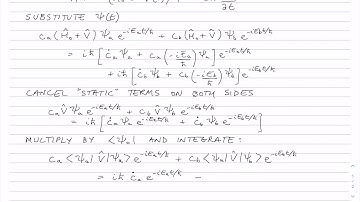 ∂t
SUBSTITUTE Ψ(t)
Ca(Ĥ₀+V̂) Ψa e^{-iEat/ħ} + Cb(Ĥ₀+V̂) Ψb e^{-iEbt/ħ}
= iħ [Ċa Ψa + Ca(-iEa/ħ) Ψa] e^{-iEat/ħ}
+ iħ [Ċb Ψb + Cb(-iEb/ħ) Ψb] e^{-iEbt/ħ}
CANCEL "STATIC" TERMS ON BOTH SIDES
Ca V̂ Ψa e^{-iEat/ħ} + Cb V̂ Ψb e^{-iEbt/ħ}
= iħ [Ċa Ψa e^{-iEat/ħ} + Ċb Ψb e^{-iEbt/ħ}]
MULTIPLY BY <Ψa| AND INTEGRATE:
Ca <Ψa|V̂|Ψa> e^{-iEat/ħ} + Cb <Ψa|V̂|Ψb> e^{-iEbt/ħ}
= iħ Ċa e^{-iEat/ħ} –